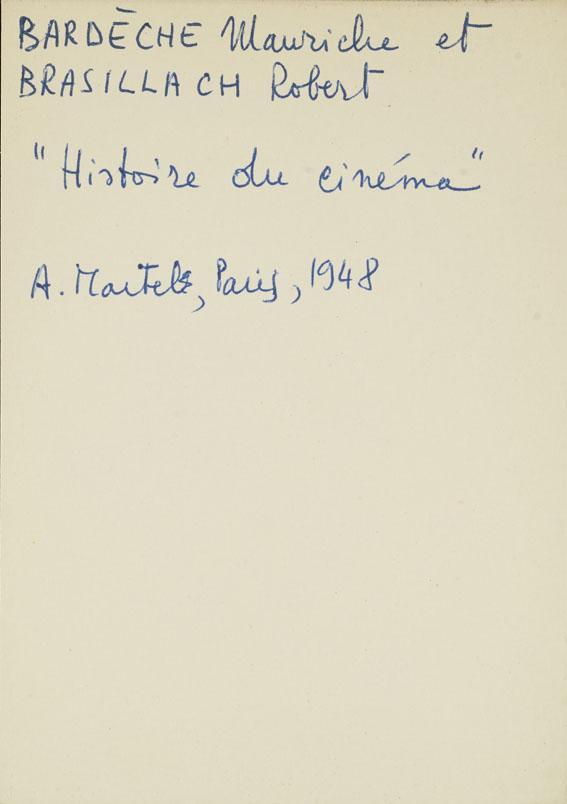 BARDÈCHE Mauriche et
BRASILLACH Robert
"Histoire du cinéma"
A. Martel, Paris, 1948